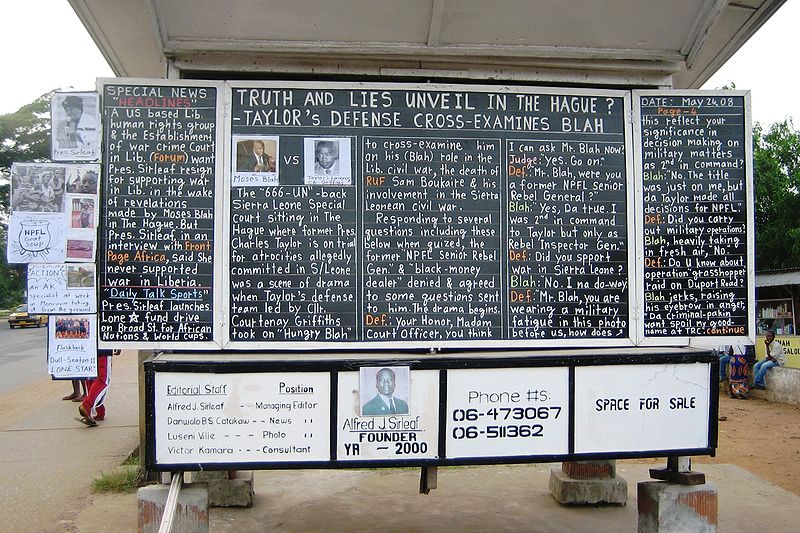 Pres. Sirleaf
NPFL
Genr
Goup
"ACTION"
An AK
specialist at
work in
Monrovia taking
from the ground
Flashback
Dull-Season!!
LONE STAR
SPECIAL NEWS
"HEADLINES"
A US based Lib.
human rights group
& the Establishment
of war crime Court
in Lib. (Forum) want
Pres. Sirleaf resign
for supporting war
in Lib. in the wake
of revelations
made by Moses Blah
in The Hague. But
Pres. Sirleaf in an
interview with Front
Page Africa, said She
never supported
war in Liberia.
"Daily Talk Sports"
Pres. Sirleaf launches
Lone ☆ fund drive
on Broad St. for African
Nations & World cups.
TRUTH AND LIES UNVEIL IN THE HAGUE?
-TAYLOR'S DEFENSE CROSS-EXAMINES BLAH
VS
Moses Blah
Taylor's Lawyer
The "666-UN"-back
Sierra Leone Special
court sitting in The
Hague where former Pres.
Charles Taylor is on trial
for atrocities allegedly
committed in S/Leone
was a scene of drama
when Taylor's defense
team led by Cllr.
Courtenay Griffiths
took on "Hungry Blah"
to cross-examine him
on his (Blah) role in the
Lib. civil war, the death of
RUF Sam Boukaire & his
involvement in the Sierra
Leonean civil war.
Responding to several
questions including these
below when quized, the
former NPFL Senior Rebel
Gen." & "black-money
dealer" denied & agreed
to some questions sent
to him. The drama begins.
Def.: Your Honor, Madam
Court Officer, you think
I can ask Mr. Blah now?
Judge: Yes. Go on."
Def.: Mr. Blah, were you
a former NPFL Senior
Rebel General?
Blah: Yes, Da true. I
was 2nd in command
to Taylor but only as
Rebel Inspector Gen."
Def: Did you spport
war in Sierra Leone?
Blah: No. I na do-way.
Def: "Mr. Blah, you are
wearing a military
fatigue in this photo
before us, how does
DATE: May 24, 08
Page-4
this reflect your
significance in
decision making on
military matters
as 2nd in Command?
Blah: "No. The title
was just on me, but
da Taylor made all
decisions for NPFL."
Def: Did you carry
out military operations?
Blah, heavily taking
in fresh air, No.
Def: Do U know about
operation "grasshopper
raid on Duport Road?
Blah jerks, raising
his eyebrow in anger,
Da Criminal-pakin
want spoil my good
name at TRC. continue
Editorial Staff Position
Alfred J. Sirleaf -- Managing Editor
Danwolo B.S. Catakaw -- News "
Luseni Ville --- Photo "
Victor Kamara --- Consultant
Alfred J. Sirleaf
FOUNDER
YR - 2000
Phone #s:
06-473067
06-511362
SPACE FOR SALE